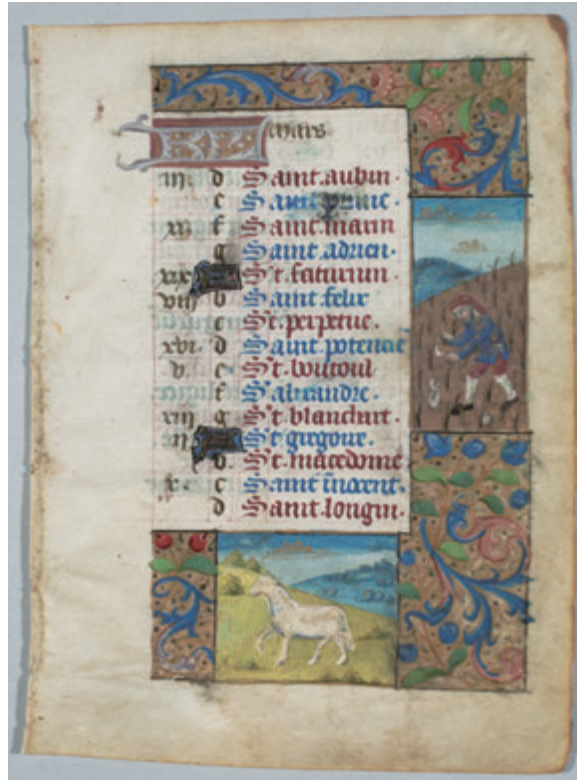 mars
iii d Saint.aubin.
e Saint
f Saint.marin
g Saint.adrien.
xix St.
viii b Saint felix
c St.perpetue.
xvi. d Saint potencie
v. e St.
f S alixandre.
xiii g St.blanchart.
ii St gregoire.
b. St.macedoine
x. c Saint inocent.
d Saint.longin.